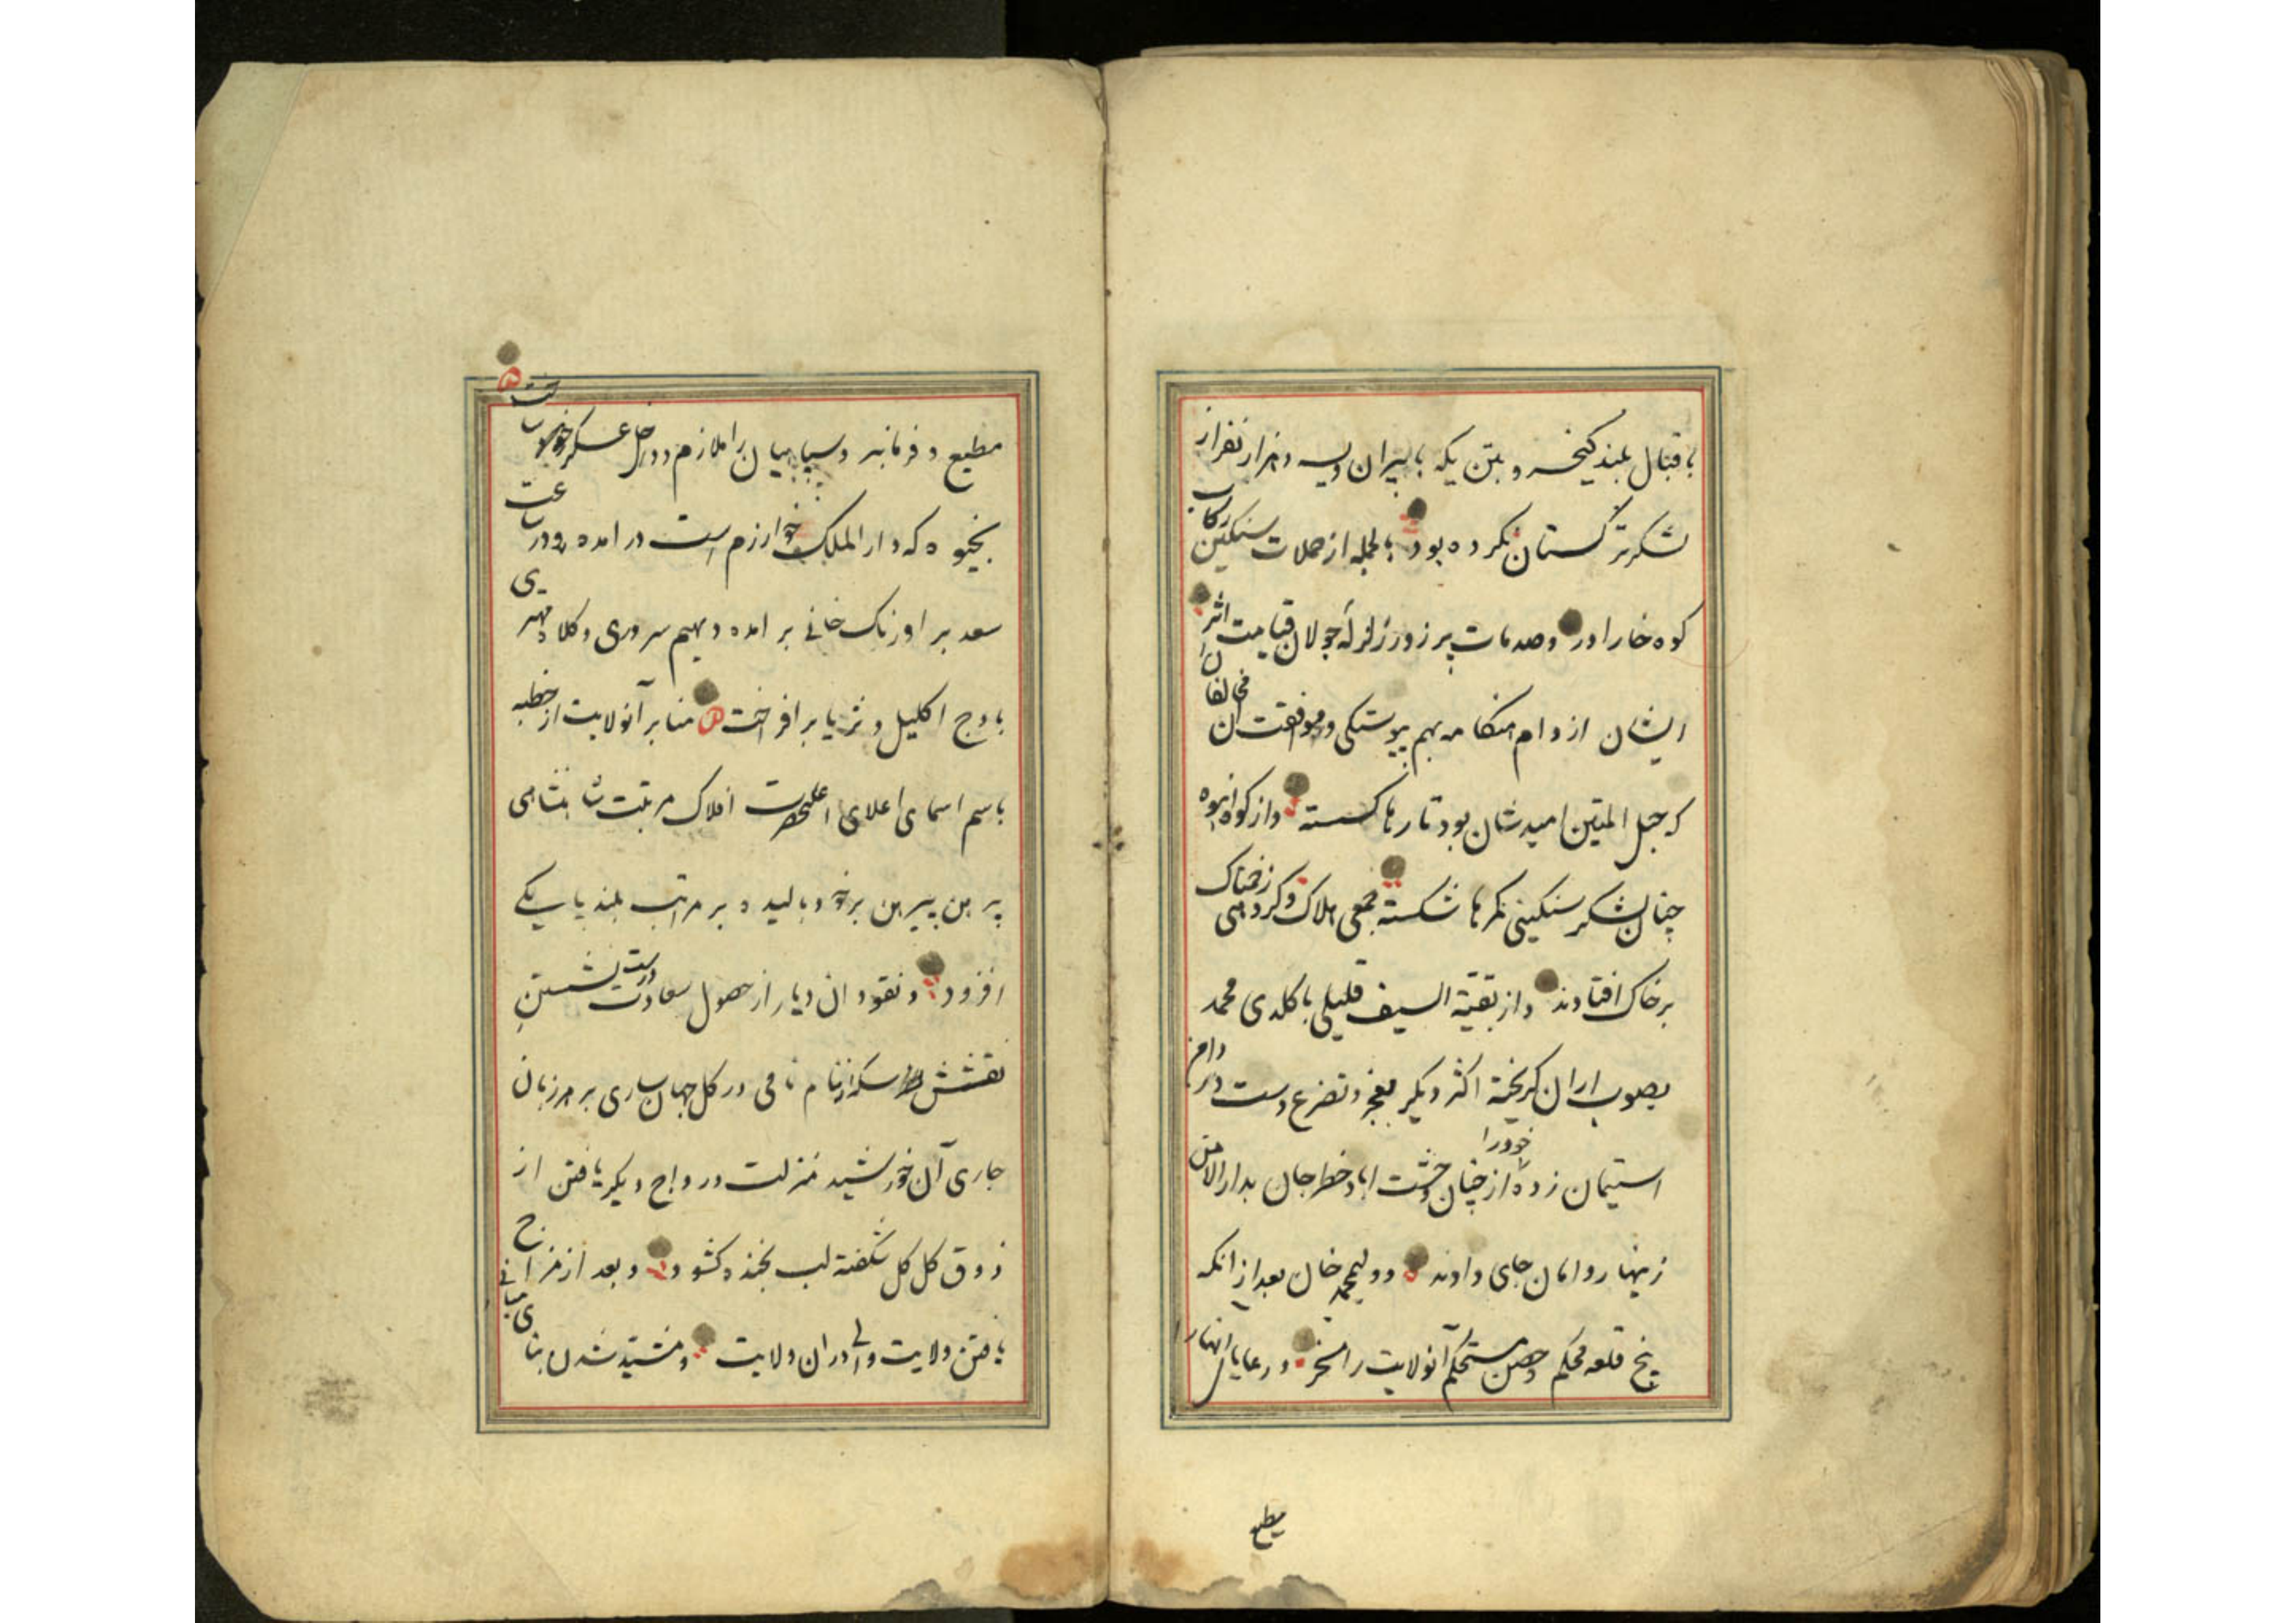 باقبال بلند کیخسرو بتن یکه با پیران ویسه و هزار نفر از
لشکر ترکستان نکرده بود بالجمله از حملات سنکین رکاب
کوه خارا در و صدمات پر زور زلزله جولان قیامت اثر
ایشان از دوام هنکامه بهم پیوستکی و موافقت آن مخالفان
که حبل المتین امید شان بود تارها کسسته و از کوه انبوه
چنان لشکر سنکینی کمرها شکسته جمعی هلاک و کروهی زخمناک
بر خاک افتادند و از بقیة السیف قلیلی با کلدی محمد
بصوب اران کریخته اکثر دیکر بعجز و تضرع دست در دامن
استیمان زده خود را از چنان وحشت اباد خطر جان بدار الامن
زینهار و امان جای دادند و ولیمحمد خان بعد از انکه
پنج قلعه محکم و حصن مستحکم آنولایت را مسخر و رعایای انها را
مطیع
مطیع و فرمانبر و سپاهیان را ملازم و داخل عسکر خود ساخت
بخیوه که دار الملک خوارزم است در امده و در ساعت
سعد بر اورنک خانی بر امده دیهیم سروری و کلاه مهتری
باوج اکلیل و ثریا بر افراخت منابر آنولایت از خطبه
باسم اسمای اعلای اعلیحضرت افلاک مرتبت شاهنشاهی
پیرهن پیرهن بر خود بالیده بر مراتب بلند پایکی
افزود و نقود ان دیار از حصول سعادت درست نشستن
نقش سکه از نام نامی در کل جهان ساری بر هر زبان
جاری آن خورشید منزلت و رواج دیکر یافتن از
ذوق کل کل شکفته لب بخنده کشود و بعد از فراخ
یافتن ولایت والی در ان ولایت و مشید شدن بنای مبانی